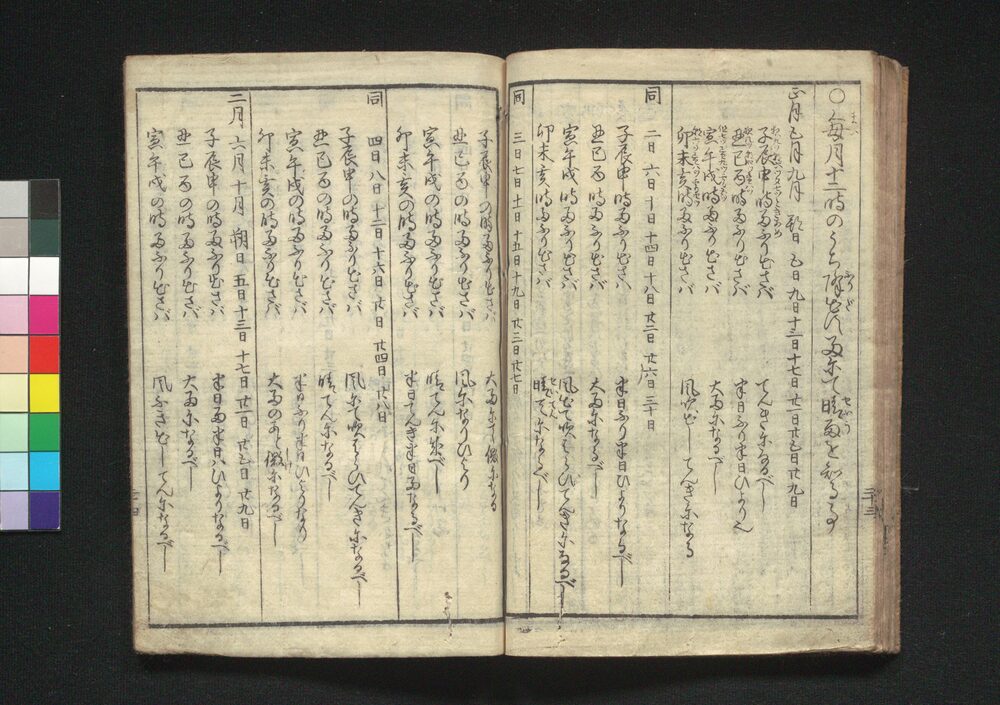 ○毎月十二時のうち降出す雨にて晴雨を知る事
正月五月九月 朔日 五日 九日 十三日 十七日 廿一日 廿五日 廿九日
子辰申の時雨ふり出さバ てんきになるべし
丑巳酉の時雨ふり出さバ 半日ふり半日ひより也
寅午戌の時雨ふり出さバ 大雨になるべし
卯未亥の時雨ふり出さバ 風吹出してんきになる
同 二日 六日 十日 十四日 十八日 廿二日 廿六日 三十日
子辰申の時雨ふり出さバ 半日ふり半日ひよりなるべし
丑巳酉の時雨ふり出さバ 大雨になるべし
寅午戌の時雨ふり出さバ 風出て吹はらひてんきになるべし
卯未亥の時雨ふり出さバ 晴てんになるべし
同 三日 七日 十一日 十五日 十九日 廿三日 廿七日
子辰申の時雨ふり出さバ 大雨にハなく微になる
丑巳酉の時雨ふり出さバ 風になりひより
寅午戌の時雨ふり出さバ 晴てんに成べし
卯未亥の時雨ふり出さバ 半日てんき半日雨なるべし
同 四日 八日 十二日 十六日 廿日 廿四日 廿八日
子辰申の時雨ふり出さバ 風にて吹はらひてんきになるべし
丑巳酉の時雨ふり出さバ 晴てんになるべし
寅午戌の時雨ふり出さバ 半日ふり半日ひよりなり
卯未亥の時雨ふり出さバ 大雨のあと微になるべし
二月 六月 十月 朔日 五日 十三日 十七日 廿一日 廿五日 廿九日
子辰申の時雨ふり出さバ 半日雨半日ハひよりなるべし
丑巳酉の時雨ふり出さバ 大雨になるべし
寅午戌の時雨ふり出さバ 風ふき出してんになるべし